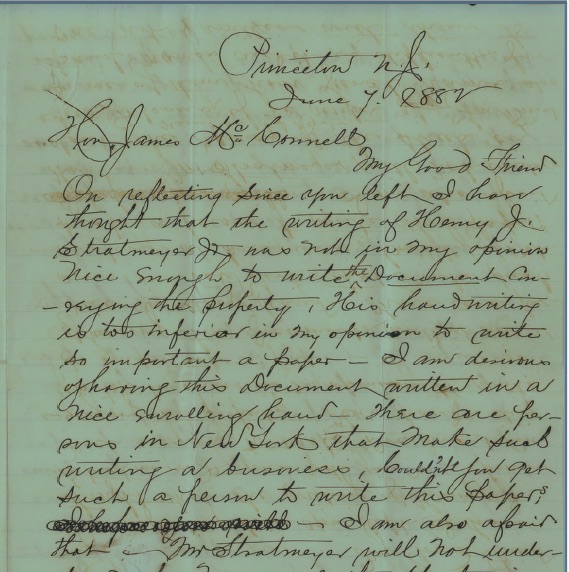 Princeton N.J.
June 7. 1882
Hon. James McConnell
My Good Friend
On reflecting since you left I have
thought that the writing of Henry J.
Stratmeyer Jr, was not in my opinion
nice enough to write the Document Con-
-veying the property, His handwriting
is too inferior in my opinion to write
so important a paper — I am desirous
of having this Document written in a
nice enrolling hand — There are per-
sons in New York that make such
writing a business, Couldn't you get
such a person to write this paper?
— I am also afraid
that — Mr Stratmeyer will not under-